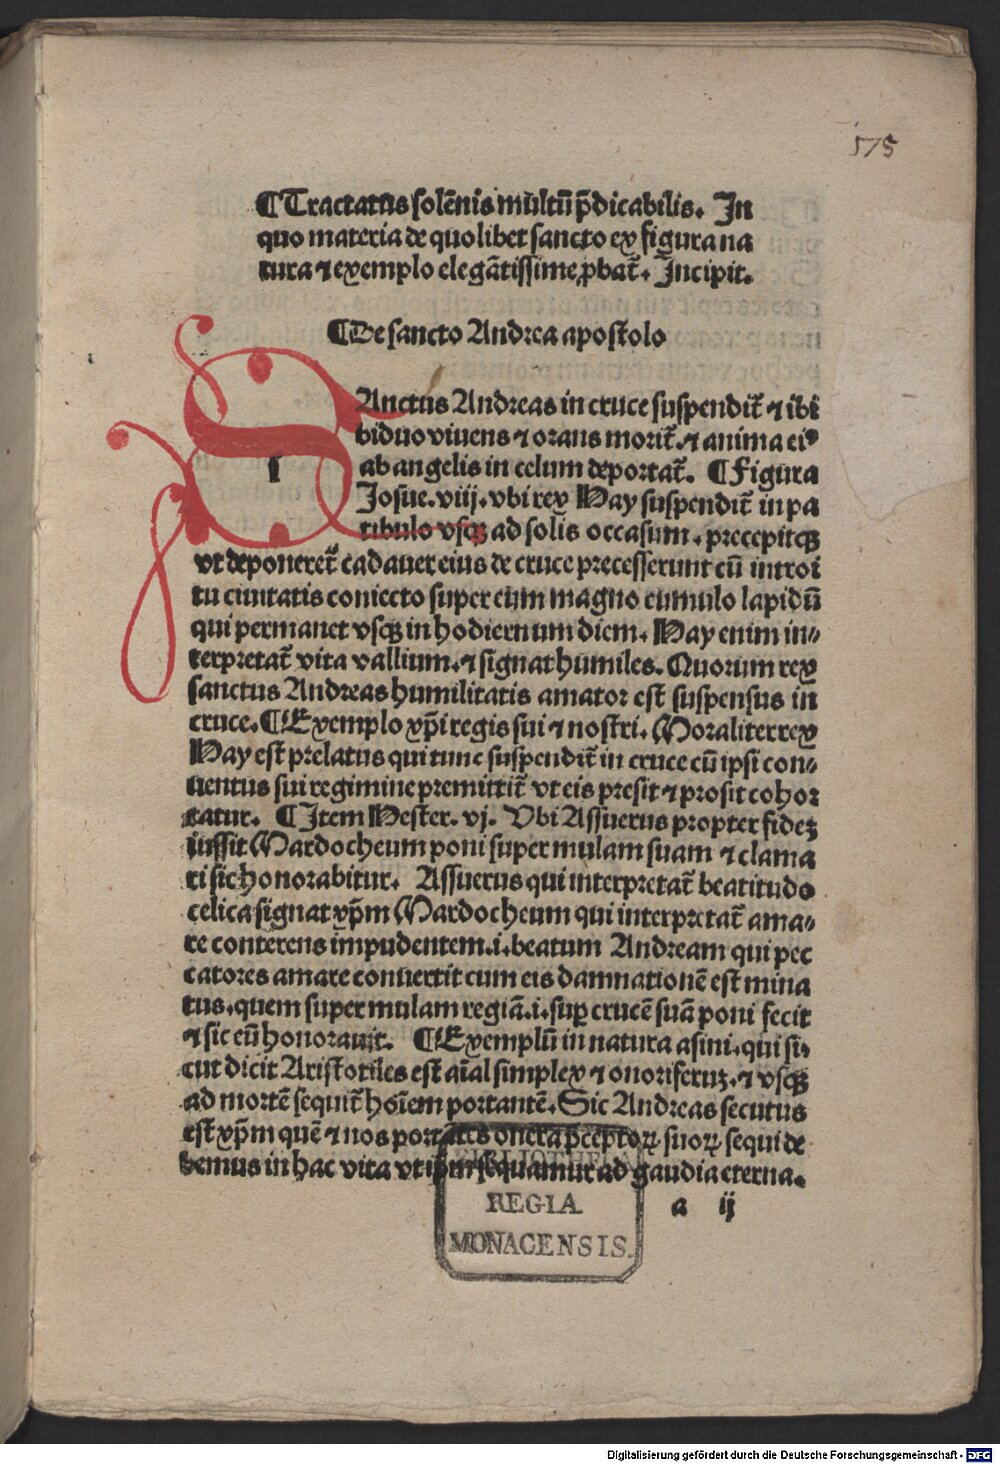 175
¶Tractatus solēnis multū p̄dicabilis. In
quo materia de quolibet sancto ex figura na
tura ⁊ exemplo elegātissime ꝓbat̄. Incipit.
¶De sancto Andrea apostolo
SAnctus Andreas in cruce suspendit̄ ⁊ ibi
biduo viuens ⁊ orans morit̄. ⁊ anima eiꝰ
ab angelis in celum deportat̄. ¶Figura
Josue. viij. vbi rex Hay suspendit̄ in pa
tibulo vsqꝫ ad solis occasum. precepitqꝫ
vt deponeret̄ cadauer eius de cruce precesserunt cū introi
tu ciuitatis coniecto super eum magno cumulo lapidū
qui permanet vsqꝫ in hodiernum diem. Hay enim in⸗
terpretat̄ vita vallium. ⁊ signat humiles. Quorum rex
sanctus Andreas humilitatis amator est suspensus in
cruce. ¶Exemplo xp̄i regis sui ⁊ nostri. Moraliter rex
Hay est prelatus qui tunc suspendit̄ in cruce cū ipsi con⸗
uentus sui regimine premittit̄ vt eis presit ⁊ prosit cohor
tatur. ¶Item Hester. vj. Vbi Assuerus propter fidez
iussit Mardocheum poni super mulam suam ⁊ clama
ri sic honorabitur. Assuerus qui interpretat̄ beatitudo
celica signat xp̄m Mardocheum qui interpretat̄ ama⸗
re conterens impudentem .i. beatum Andream qui pec
catores amare conuertit cum eis damnationē est mina
tus. quem super mulam regiā .i. suꝑ crucē suā poni fecit
⁊ sic eū honorauit. ¶Exemplū in natura asini. qui si⸗
cut dicit Aristotiles est aīal simplex ⁊ onoriferuꝫ. ⁊ vsqꝫ
ad mortē sequit̄ hoīem portantē. Sic Andreas secutus
est xp̄m quē ⁊ nos portātes onera p̄ceptoꝝ suoꝝ sequi de
bemus in hac vita vt ip̄m sequamur ad gaudia eterna.
a ij
BIBLIOTHECA
REGIA
MONACENSIS.
Digitalisierung gefördert durch die Deutsche Forschungsgemeinschaft - DFG